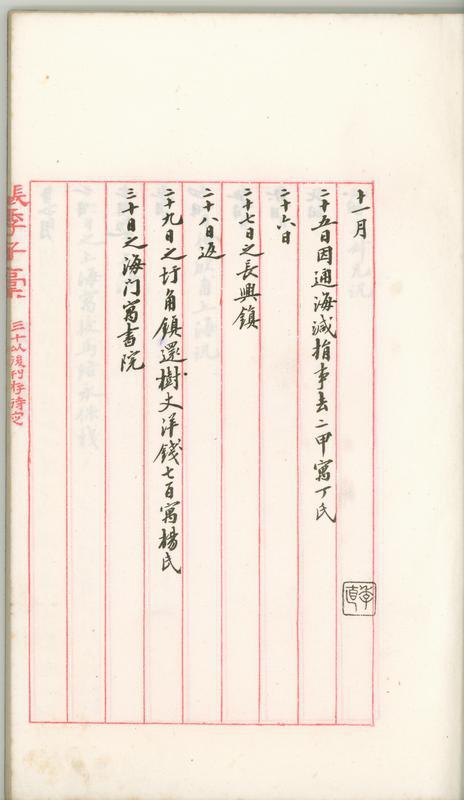 十一月
二十五日因通海減捐事去二甲寓丁氏
二十六日
二十七日之長興鎮
二十八日返
二十九日之圩角鎮還樹丈洋錢七百寓楊氏
三十日之海门寓書院
張季子稾
三十以後刊存待定
季直